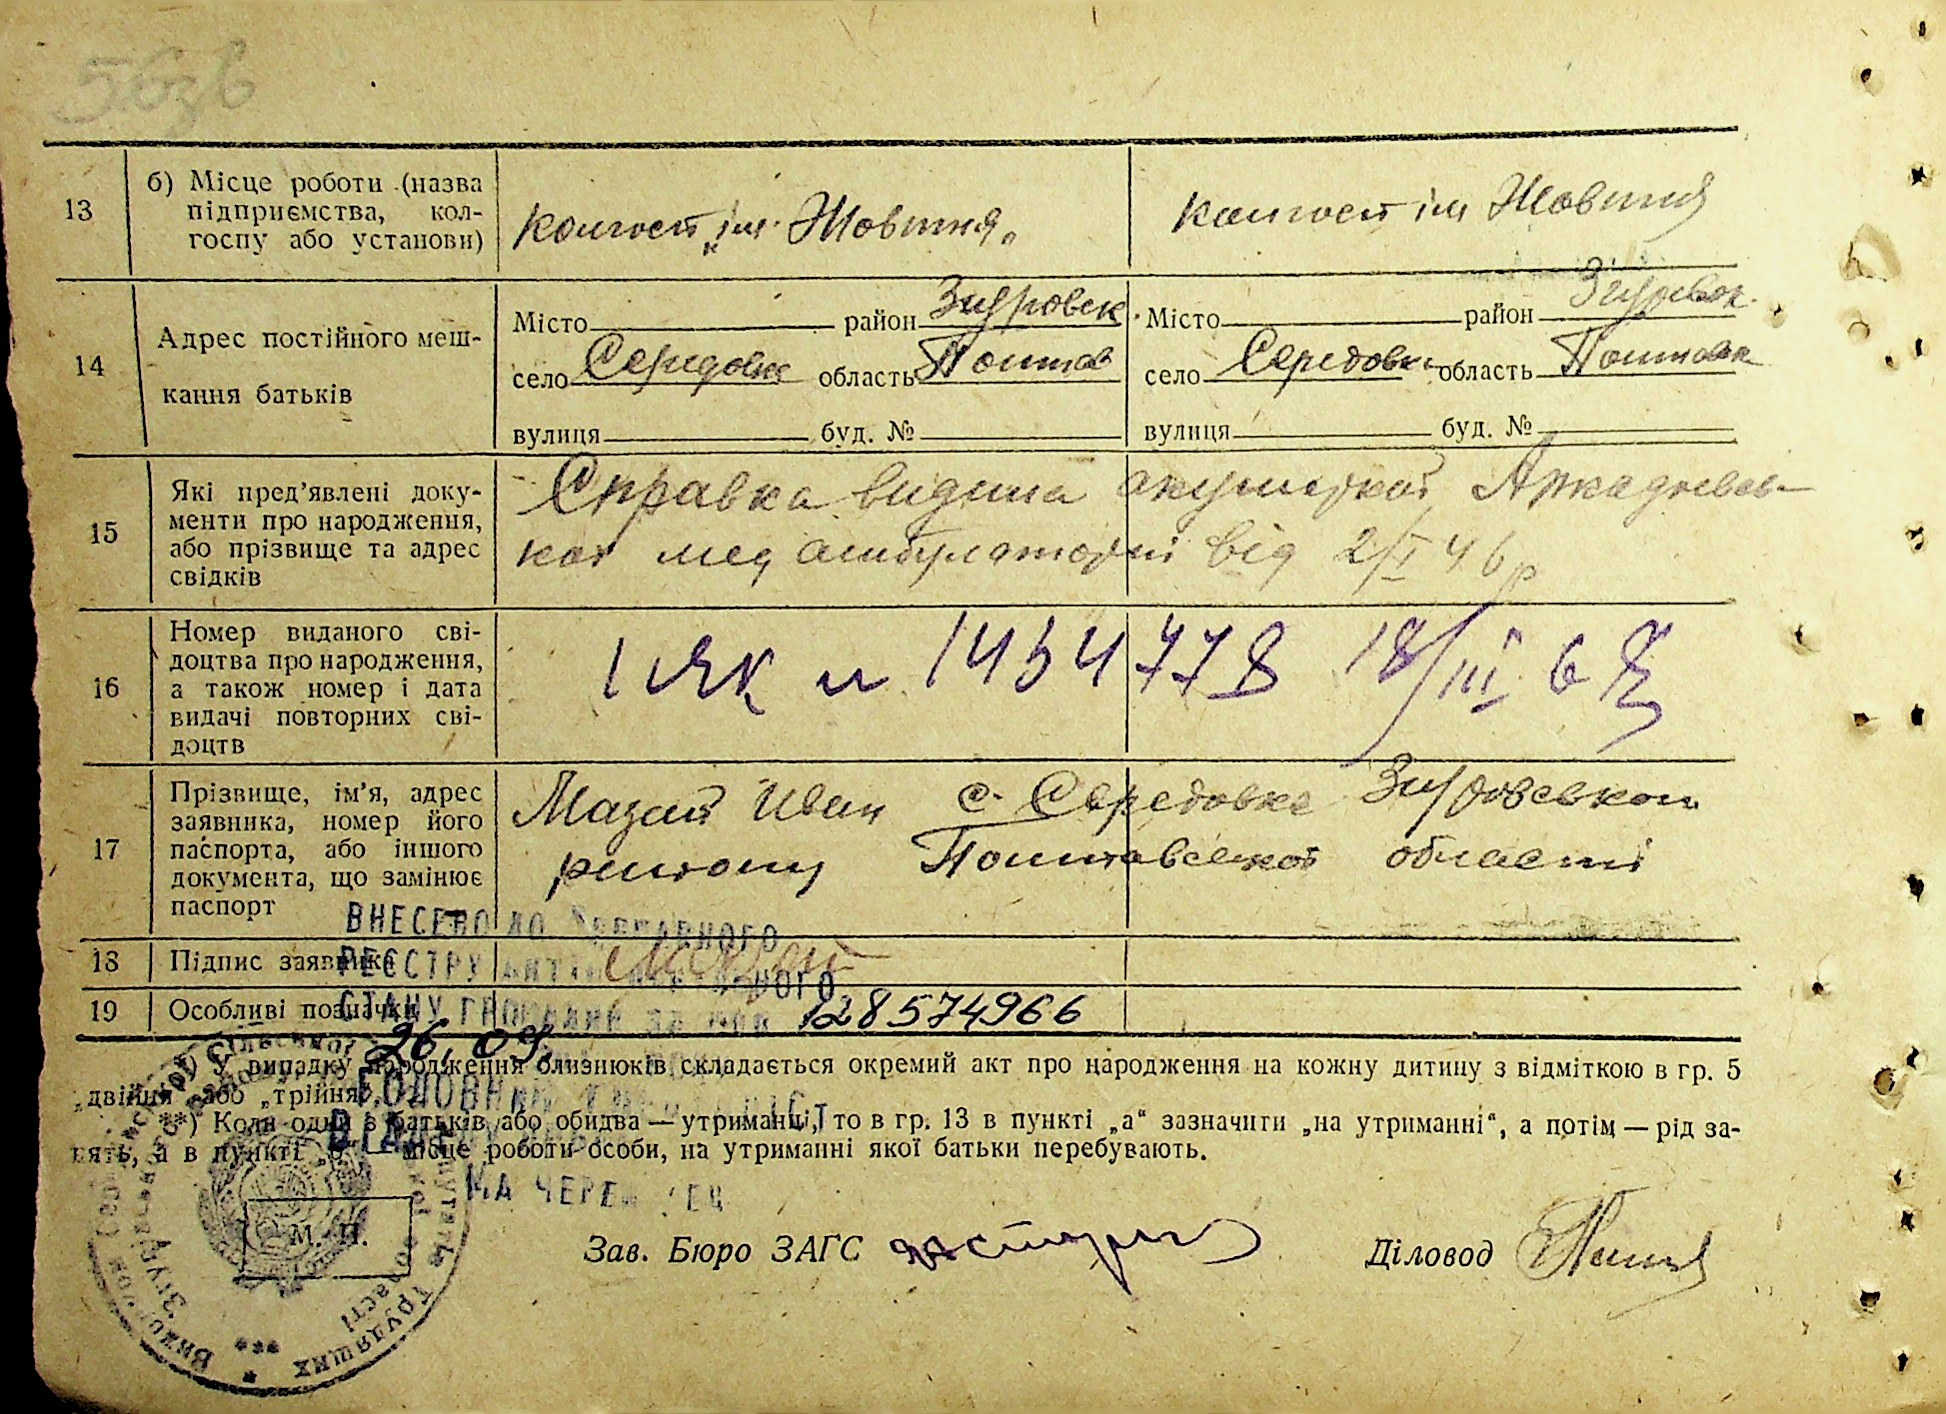 13
б) Місце роботи (назва
підприємства, кол-
госпу або установи)
колгосп „ім. Жовтня"
колгосп ім Жовтня
14
Адрес постійного меш-
кання батьків
Місто район Згуровск.
село Середовка область Полтав
вулиця буд. №
Місто район Згуровск.
село Середовка область Полтавск
вулиця буд. №
15
Які пред'явлені доку-
менти про народження,
або прізвище та адрес
свідків
Справка видана акушеркой Аркадиевс-
кой мед амбулаторії від 2/I 46 р
16
Номер виданого сві-
доцтва про народження,
а також номер і дата
видачі повторних сві-
доцтв
1454778 18/III 6
17
Прізвище, ім'я, адрес
заявника, номер його
паспорта, або іншого
документа, що замінює
паспорт
Мазай Иван с. Середовка Згуровского
району Полтавської області
ВНЕСЕНО ДО ДЕРЖАВНОГО
18
Підпис заявника
РЕЄСТРУ АКТІВ ЦИВІЛЬНОГО
19
Особливі позначки
СТАНУ ГРОМАДЯН ЗА 128574966
26.09.
У випадку народження близнюків складається окремий акт про народження на кожну дитину з відміткою в гр. 5
„двійня" або „трійня".
ГОЛОВНИЙ СПЕЦІАЛІСТ
**) Коли один з батьків або обидва — утриманці, то в гр. 13 в пункті „а" зазначити „на утриманні", а потім — рід за-
нять, а в пункті „б" — місце роботи особи, на утриманні якої батьки перебувають.
М. П.
Зав. Бюро ЗАГС
Діловод